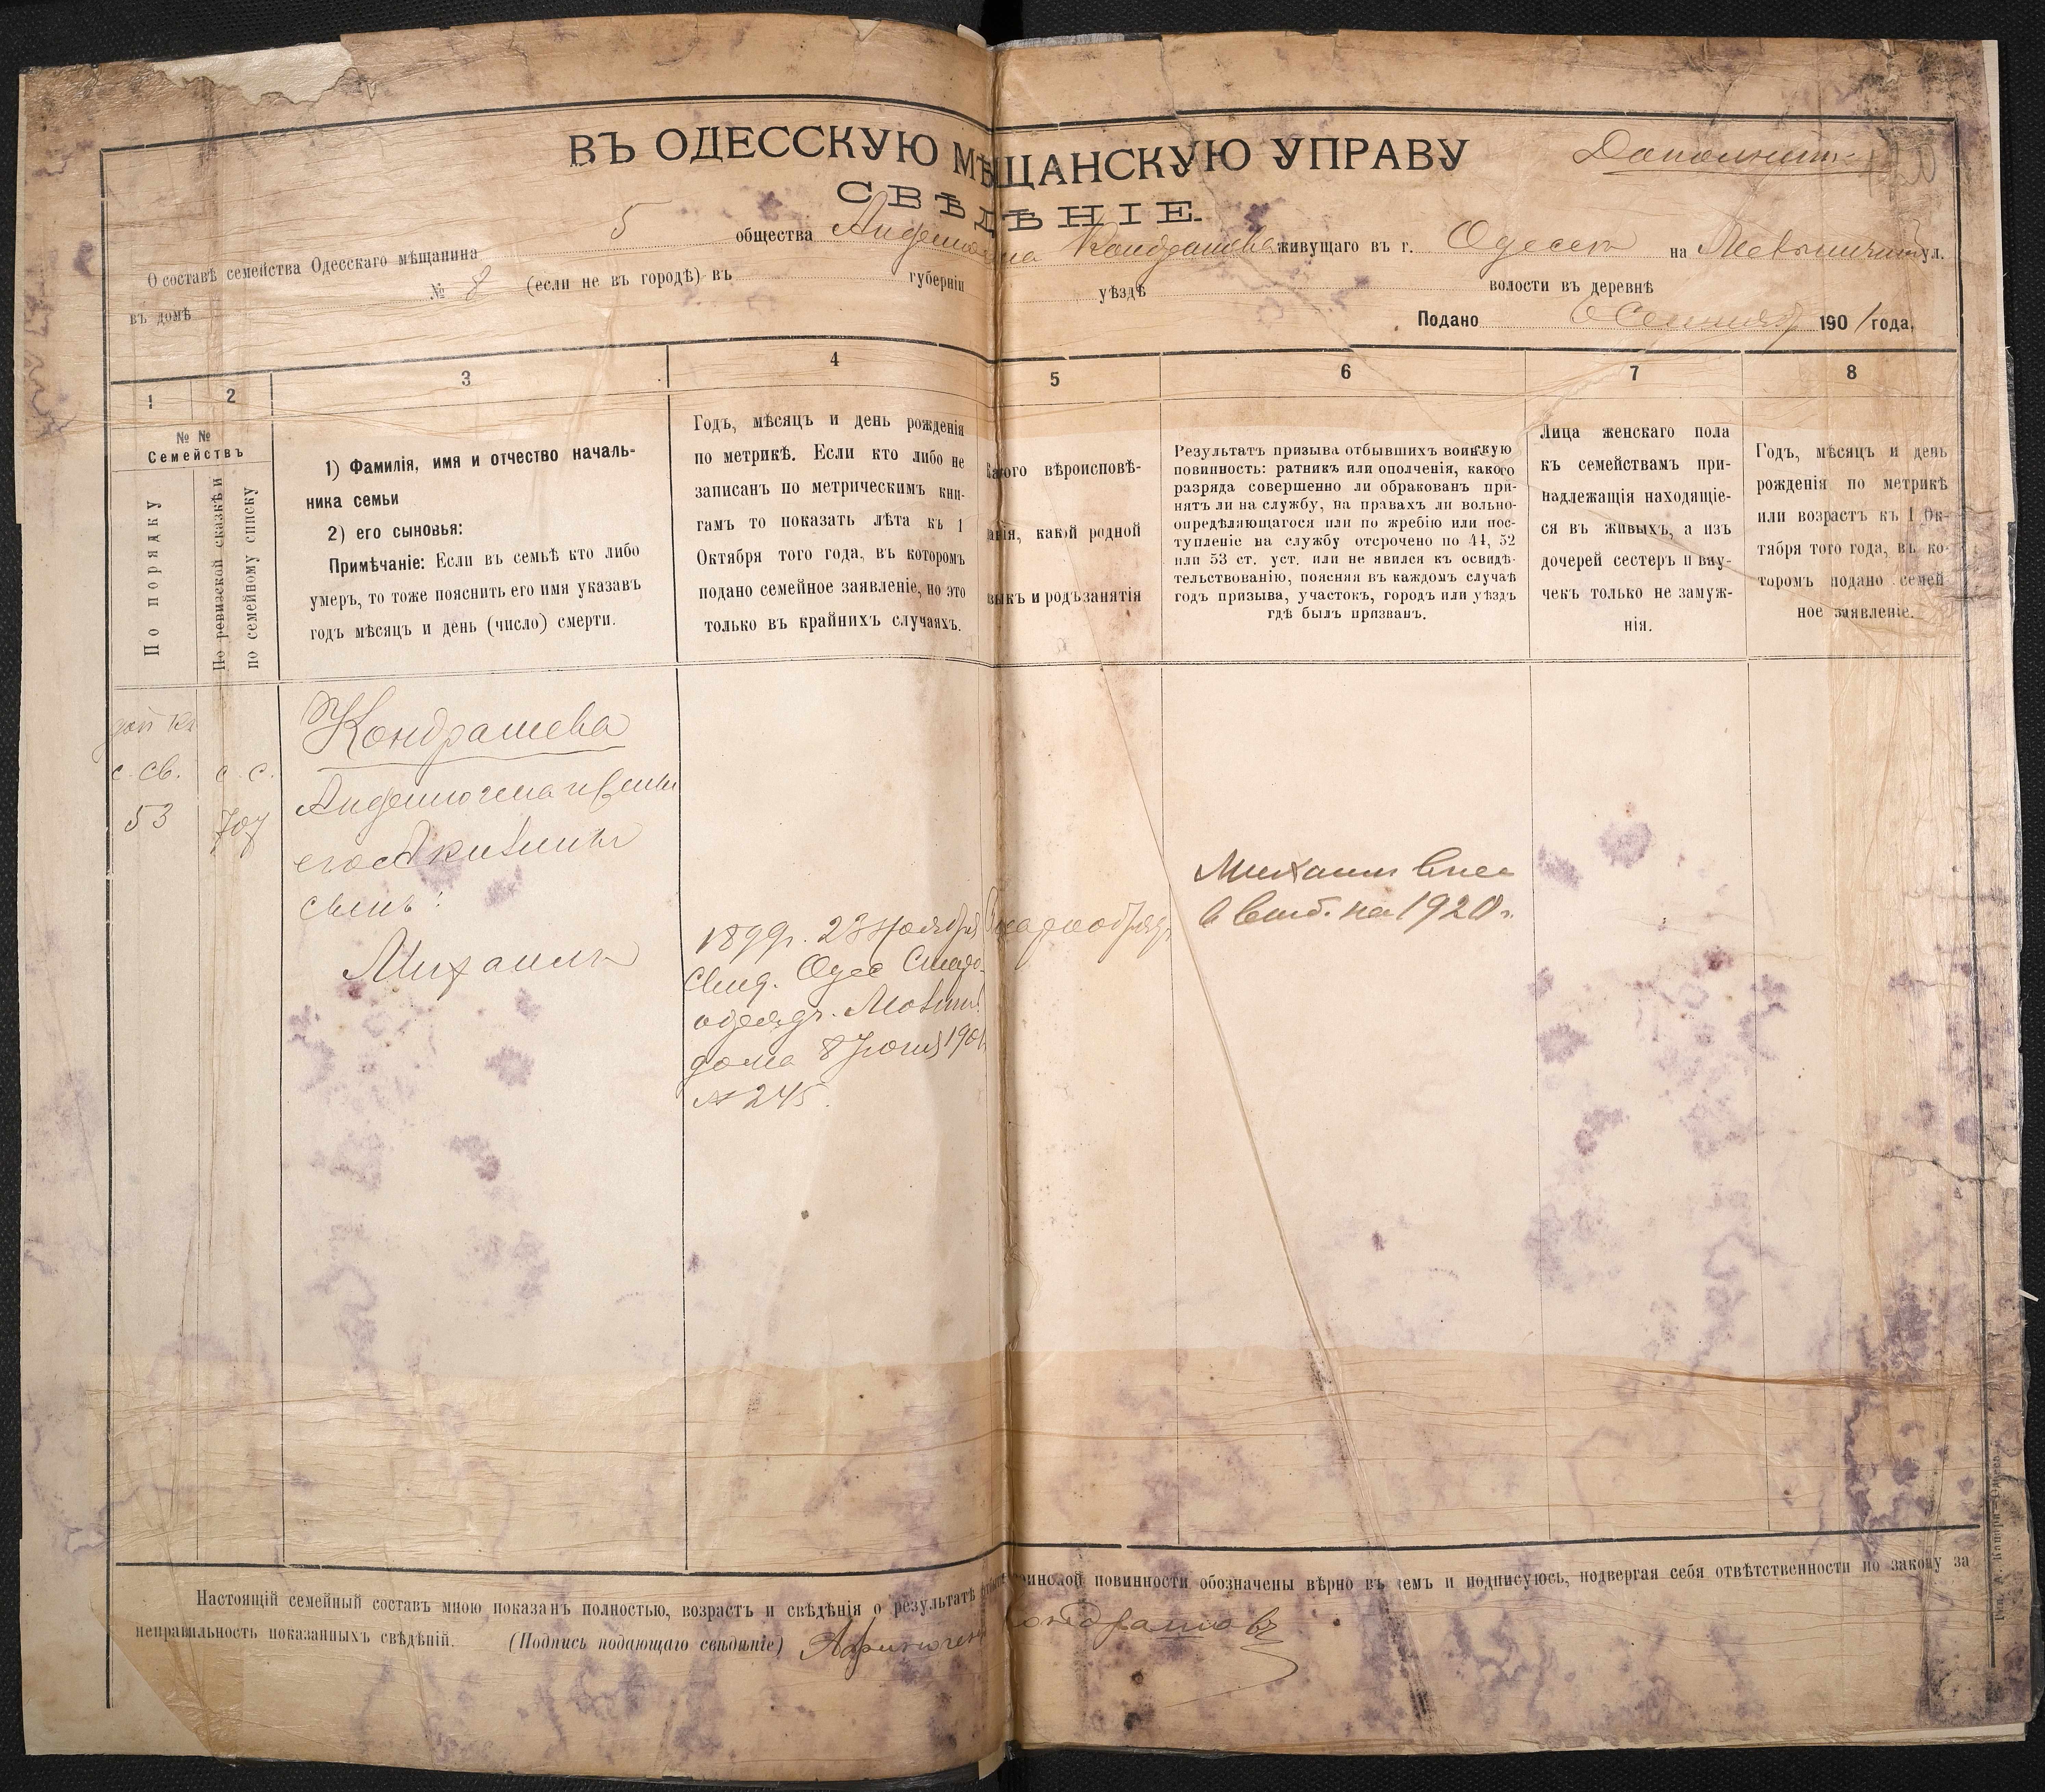 ВЪ ОДЕССКУЮ МѢЩАНСКУЮ УПРАВУ
СВѢДѢНІЕ.
О составѣ семейства Одесскаго мѣщанина 5 общества Кондрашева живущаго въ г. Одессѣ на ул.
въ домѣ № 8 (если не въ городѣ) въ губерніи уѣздѣ волости въ деревнѣ
Подано 1901 года.
1 2 3 4 5 6 7 8
№ №
Семействъ
По порядку
По ревизской сказкѣ и
по семейному списку
1) Фамилія, имя и отчество началь-
ника семьи
2) его сыновья:
Примѣчаніе: Если въ семьѣ кто либо
умеръ, то тоже пояснить его имя указавъ
годъ мѣсяцъ и день (число) смерти.
Годъ, мѣсяцъ и день рожденія
по метрикѣ. Если кто либо не
записанъ по метрическимъ кни-
гамъ то показать лѣта къ 1
Октября того года, въ которомъ
подано семейное заявленіе, но это
только въ крайнихъ случаяхъ.
Какого вѣроисповѣ-
данія, какой родной
языкъ и родъ занятія
Результатъ призыва отбывшихъ воинскую
повинность: ратникъ или ополченія, какого
разряда совершенно ли обракованъ при-
нятъ ли на службу, на правахъ ли вольно-
опредѣляющагося или по жребію или пос-
тупленіе на службу отсрочено по 44, 52
или 53 ст. уст. или не явился къ освидѣ-
тельствованію, поясняя въ каждомъ случаѣ
годъ призыва, участокъ, городъ или уѣздъ
гдѣ былъ призванъ.
Лица женскаго пола
къ семействамъ при-
надлежащія находящіе-
ся въ живыхъ, а изъ
дочерей сестеръ и вну-
чекъ только не замуж-
нія.
Годъ, мѣсяцъ и день
рожденія по метрикѣ
или возрастъ къ 1 Ок-
тября того года, въ ко-
торомъ подано семей-
ное заявленіе.
с. св. с. с.
53 707
Кондрашева
его
сынъ:
Михаилъ
1899 г. 23 Ноября
Свид. Одес Старо-
дома 8 1901
№ 245.
Михаил внес
в на 1920 г.
Настоящій семейный составъ мною показанъ полностью, возрастъ и свѣдѣнія о результатѣ воинской повинности обозначены вѣрно въ чемъ и подписуюсь, подвергая себя отвѣтственности по закону за
неправильность показанныхъ свѣдѣній. (Подпись подающаго свѣдѣніе) Кондрашовъ